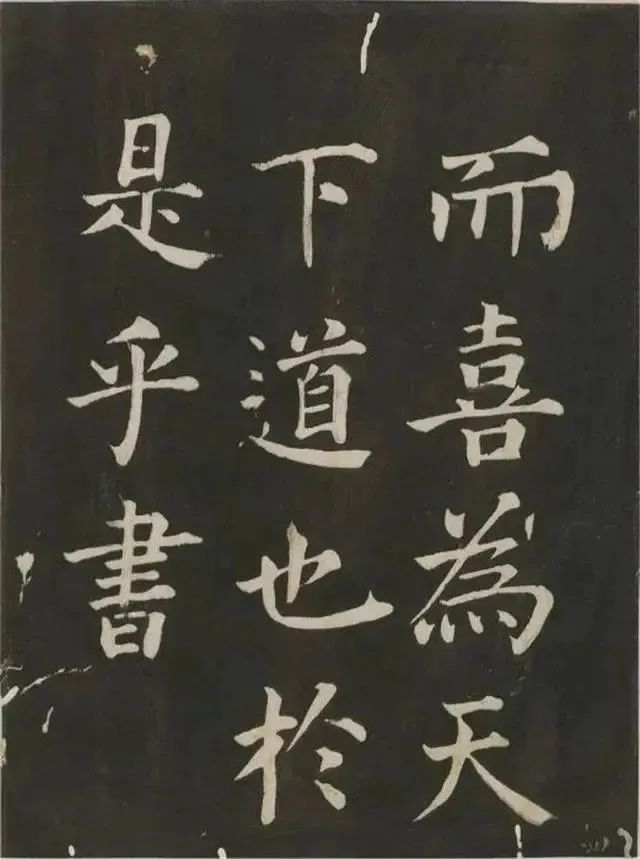 而喜為天
下道也於
是乎書